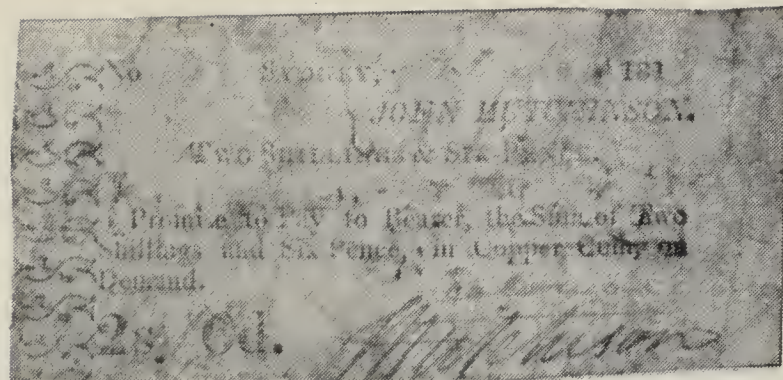 No SYDNEY, 181
JOHN HUTCHINSON.
TWO SHILLINGS & SIX PENCE.
I Promise to Pay to Bearer, the Sum of Two
Shillings and Six Pence, in Copper Coin, on
Demand.
2s. 6d.
Hutchinson